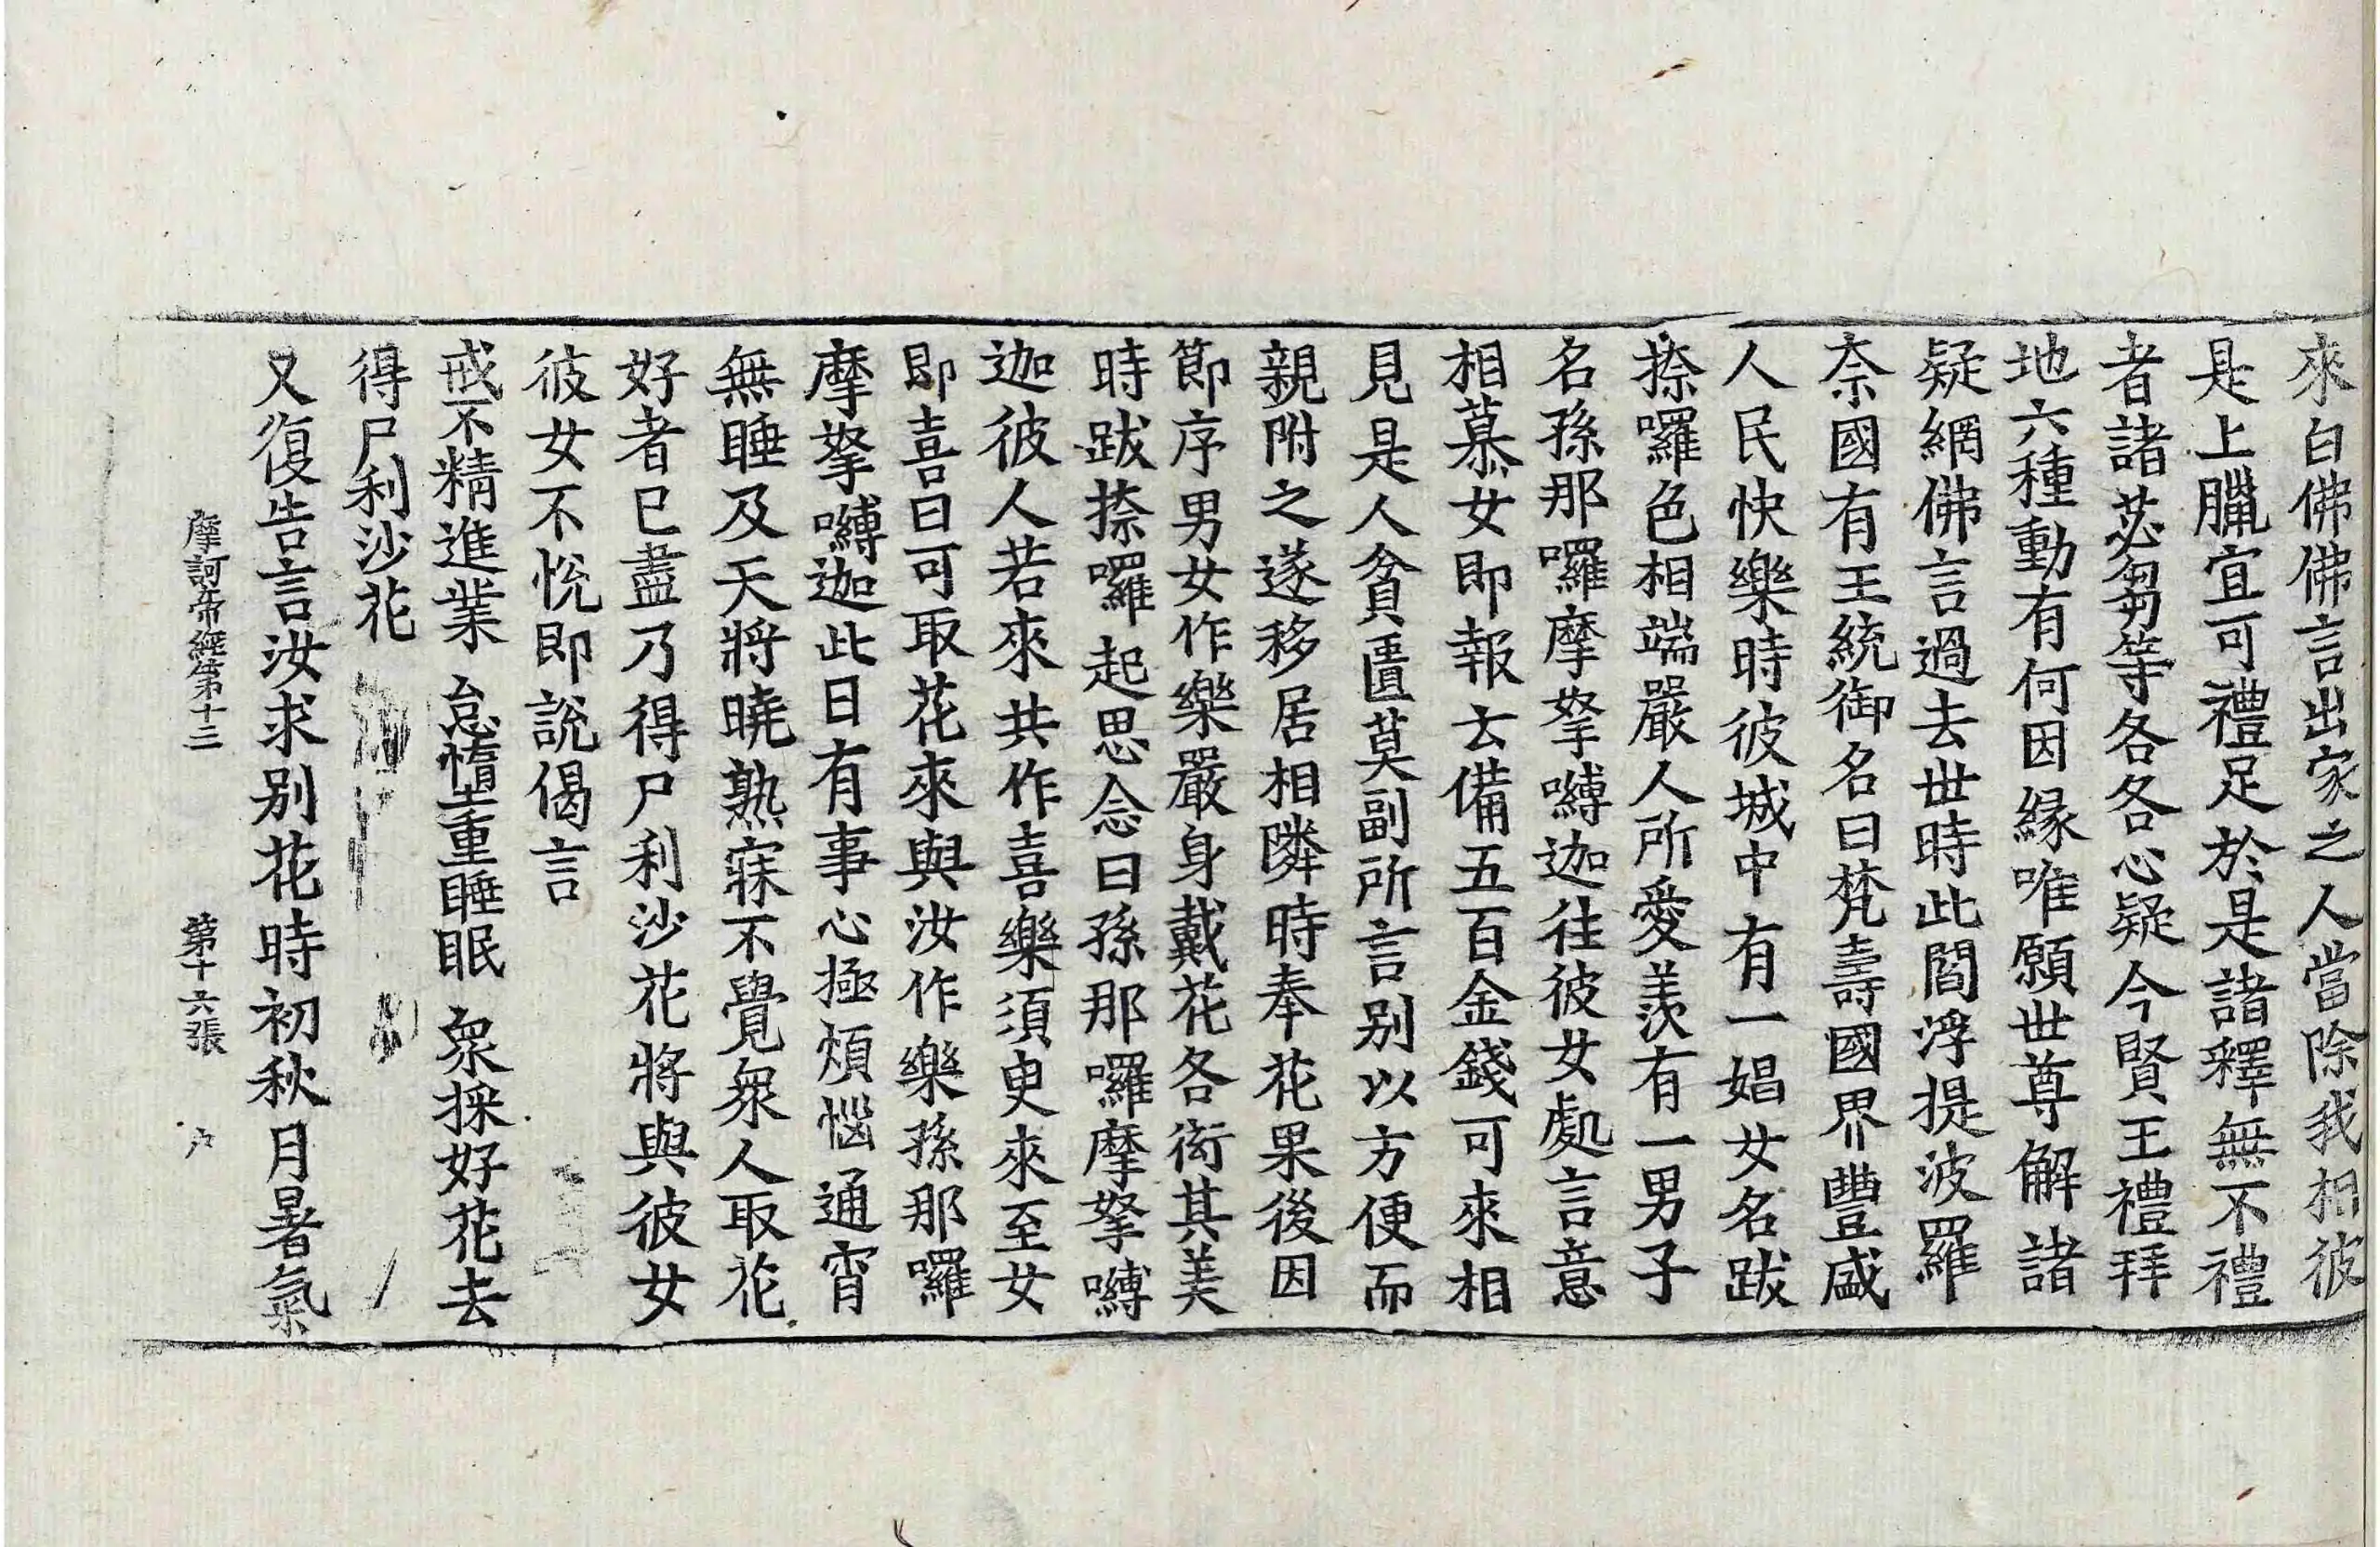 來白佛佛言出家之人當除我相彼
是上臘宜可禮足於是諸釋無不禮
者諸苾芻等各各心疑今賢王禮拜
地六種動有何因緣唯願世尊解諸
疑網佛言過去世時此閻浮提波羅
柰國有王統御名曰梵壽國界豐盛
人民快樂時彼城中有一娼女名跋
捺囉色相端嚴人所愛羨有一男子
名孫那囉摩拏嚩迦往彼女處言意
相慕女即報云備五百金錢可來相
見是人貧匱莫副所言別以方便而
親附之遂移居相隣時奉花果後因
節序男女作樂嚴身戴花各衒其美
時跋捺囉起思念曰孫那囉摩拏嚩
迦彼人若來共作喜樂須臾來至女
即喜曰可取花來與汝作樂孫那囉
摩拏嚩迦此日有事心極煩惱通宵
無睡及天將曉熟寐不覺衆人取花
好者已盡乃得尸利沙花將與彼女
彼女不悅即說偈言
戒不精進業 怠惰重睡眠 衆採好花去
得尸利沙花
又復告言汝求別花時初秋月暑氣
摩訶帝經第十三 第十六張 户